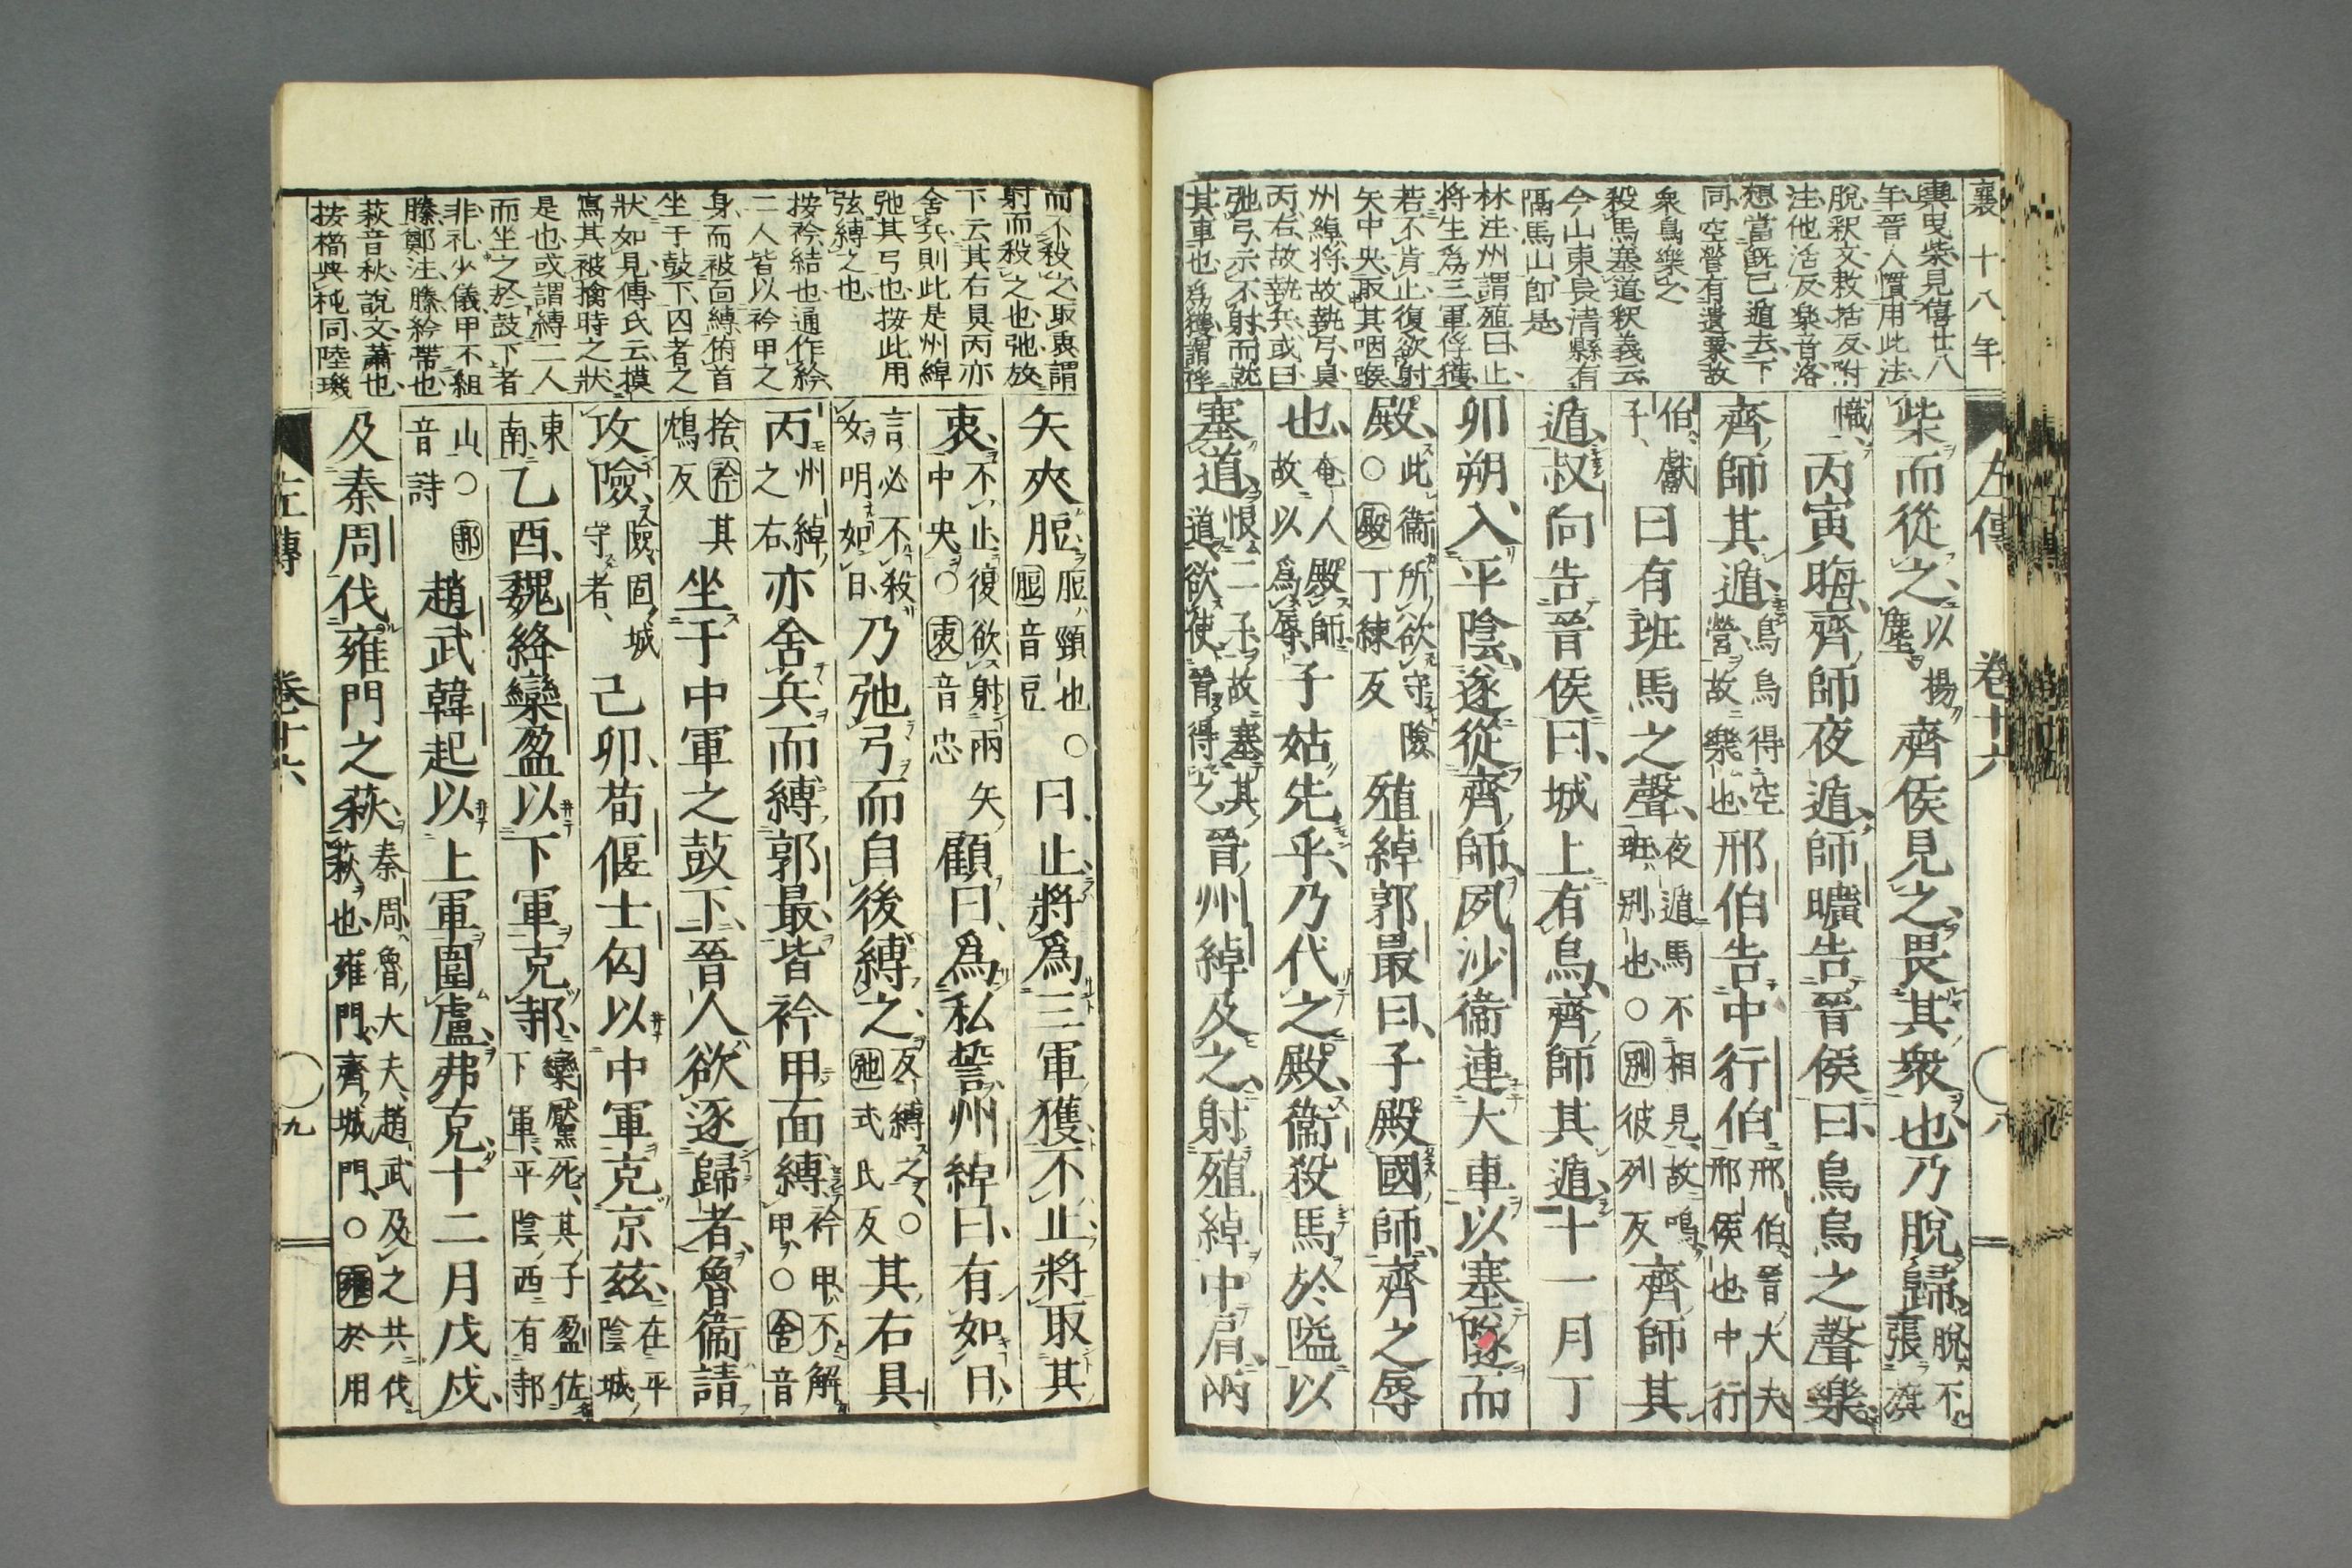 襄十八年
左傳
卷十六
八
輿曳柴見僖廿八
年晉人慣用此法
脫釈文敕括反附
注他活反樂音洛
想當旣已遁去下
同空營有遺粟故
衆鳥樂之
殺馬塞道釈義云
今山東長清縣有
隔馬山即是
林注州謂殖曰止
將生爲三軍俘獲
若不肯止復欲射
矢中央取其咽喉
州綽将故執弓具
丙右故執兵或曰
弛弓示不射而就
其車也爲獲謂俘
柴而從之以揚塵齊侯見之畏其衆也乃脫歸脫不張旗
幟丙寅晦齊師夜遁師曠告晉侯曰鳥烏之聲樂
齊師其遁鳥烏得空營故樂也邢伯告中行伯邢伯晉大夫邢侯也中行
伯獻子曰有班馬之聲夜遁馬不相見故鳴班別也○別彼列反齊師其
遁叔向告晉侯曰城上有烏齊師其遁十一月丁
卯朔入平陰遂從齊師夙沙衞連大車以塞隧而
殿此衞所欲守險○殿丁練反殖綽郭最曰子殿國師齊之辱
也奄人殿師故以爲辱子姑先乎乃代之殿衞殺馬於隘以
塞道恨二子故塞其道欲使晉得之晉州綽及之射殖綽中肩兩
而不殺之取衷謂
射而殺之也弛放
下云其右具丙亦
舍兵則此是州綽
弛其弓也按此用
弦縛之也
按衿結也通作紟
二人皆以衿甲之
身而被面縛俯首
坐于鼓下囚者之
狀如見傅氏云摸
寫其被擒時之狀
是也或謂縛二人
而坐之於鼓下者
非礼少儀甲不組
縢鄭注縢紟帶也
萩音秋說文蕭也
按橁與杶同陸璣
矢夾脰脰頸也○脰音豆曰止將爲三軍獲不止將取其
衷不止復欲射兩矢中央○衷音忠顧曰爲私誓州綽曰有如日
言必不殺女明如日乃弛弓而自後縛之反縛之○弛式氏反其右具
丙州綽之右亦舍兵而縛郭最皆衿甲面縛衿甲不解甲○舍音
捨衿其鴆反坐于中軍之鼓下晉人欲逐歸者魯衞請
攻險險固城守者己卯荀偃士匄以中軍克京茲在平陰城
東南乙酉魏絳欒盈以下軍克邿欒黶死其子盈佐下軍平陰西有邿
山○邿音詩趙武韓起以上軍圍盧弗克十二月戊戌
及秦周伐雍門之萩秦周魯大夫趙武及之共伐萩也雍門齊城門○雍於用
左傳
卷十六
九